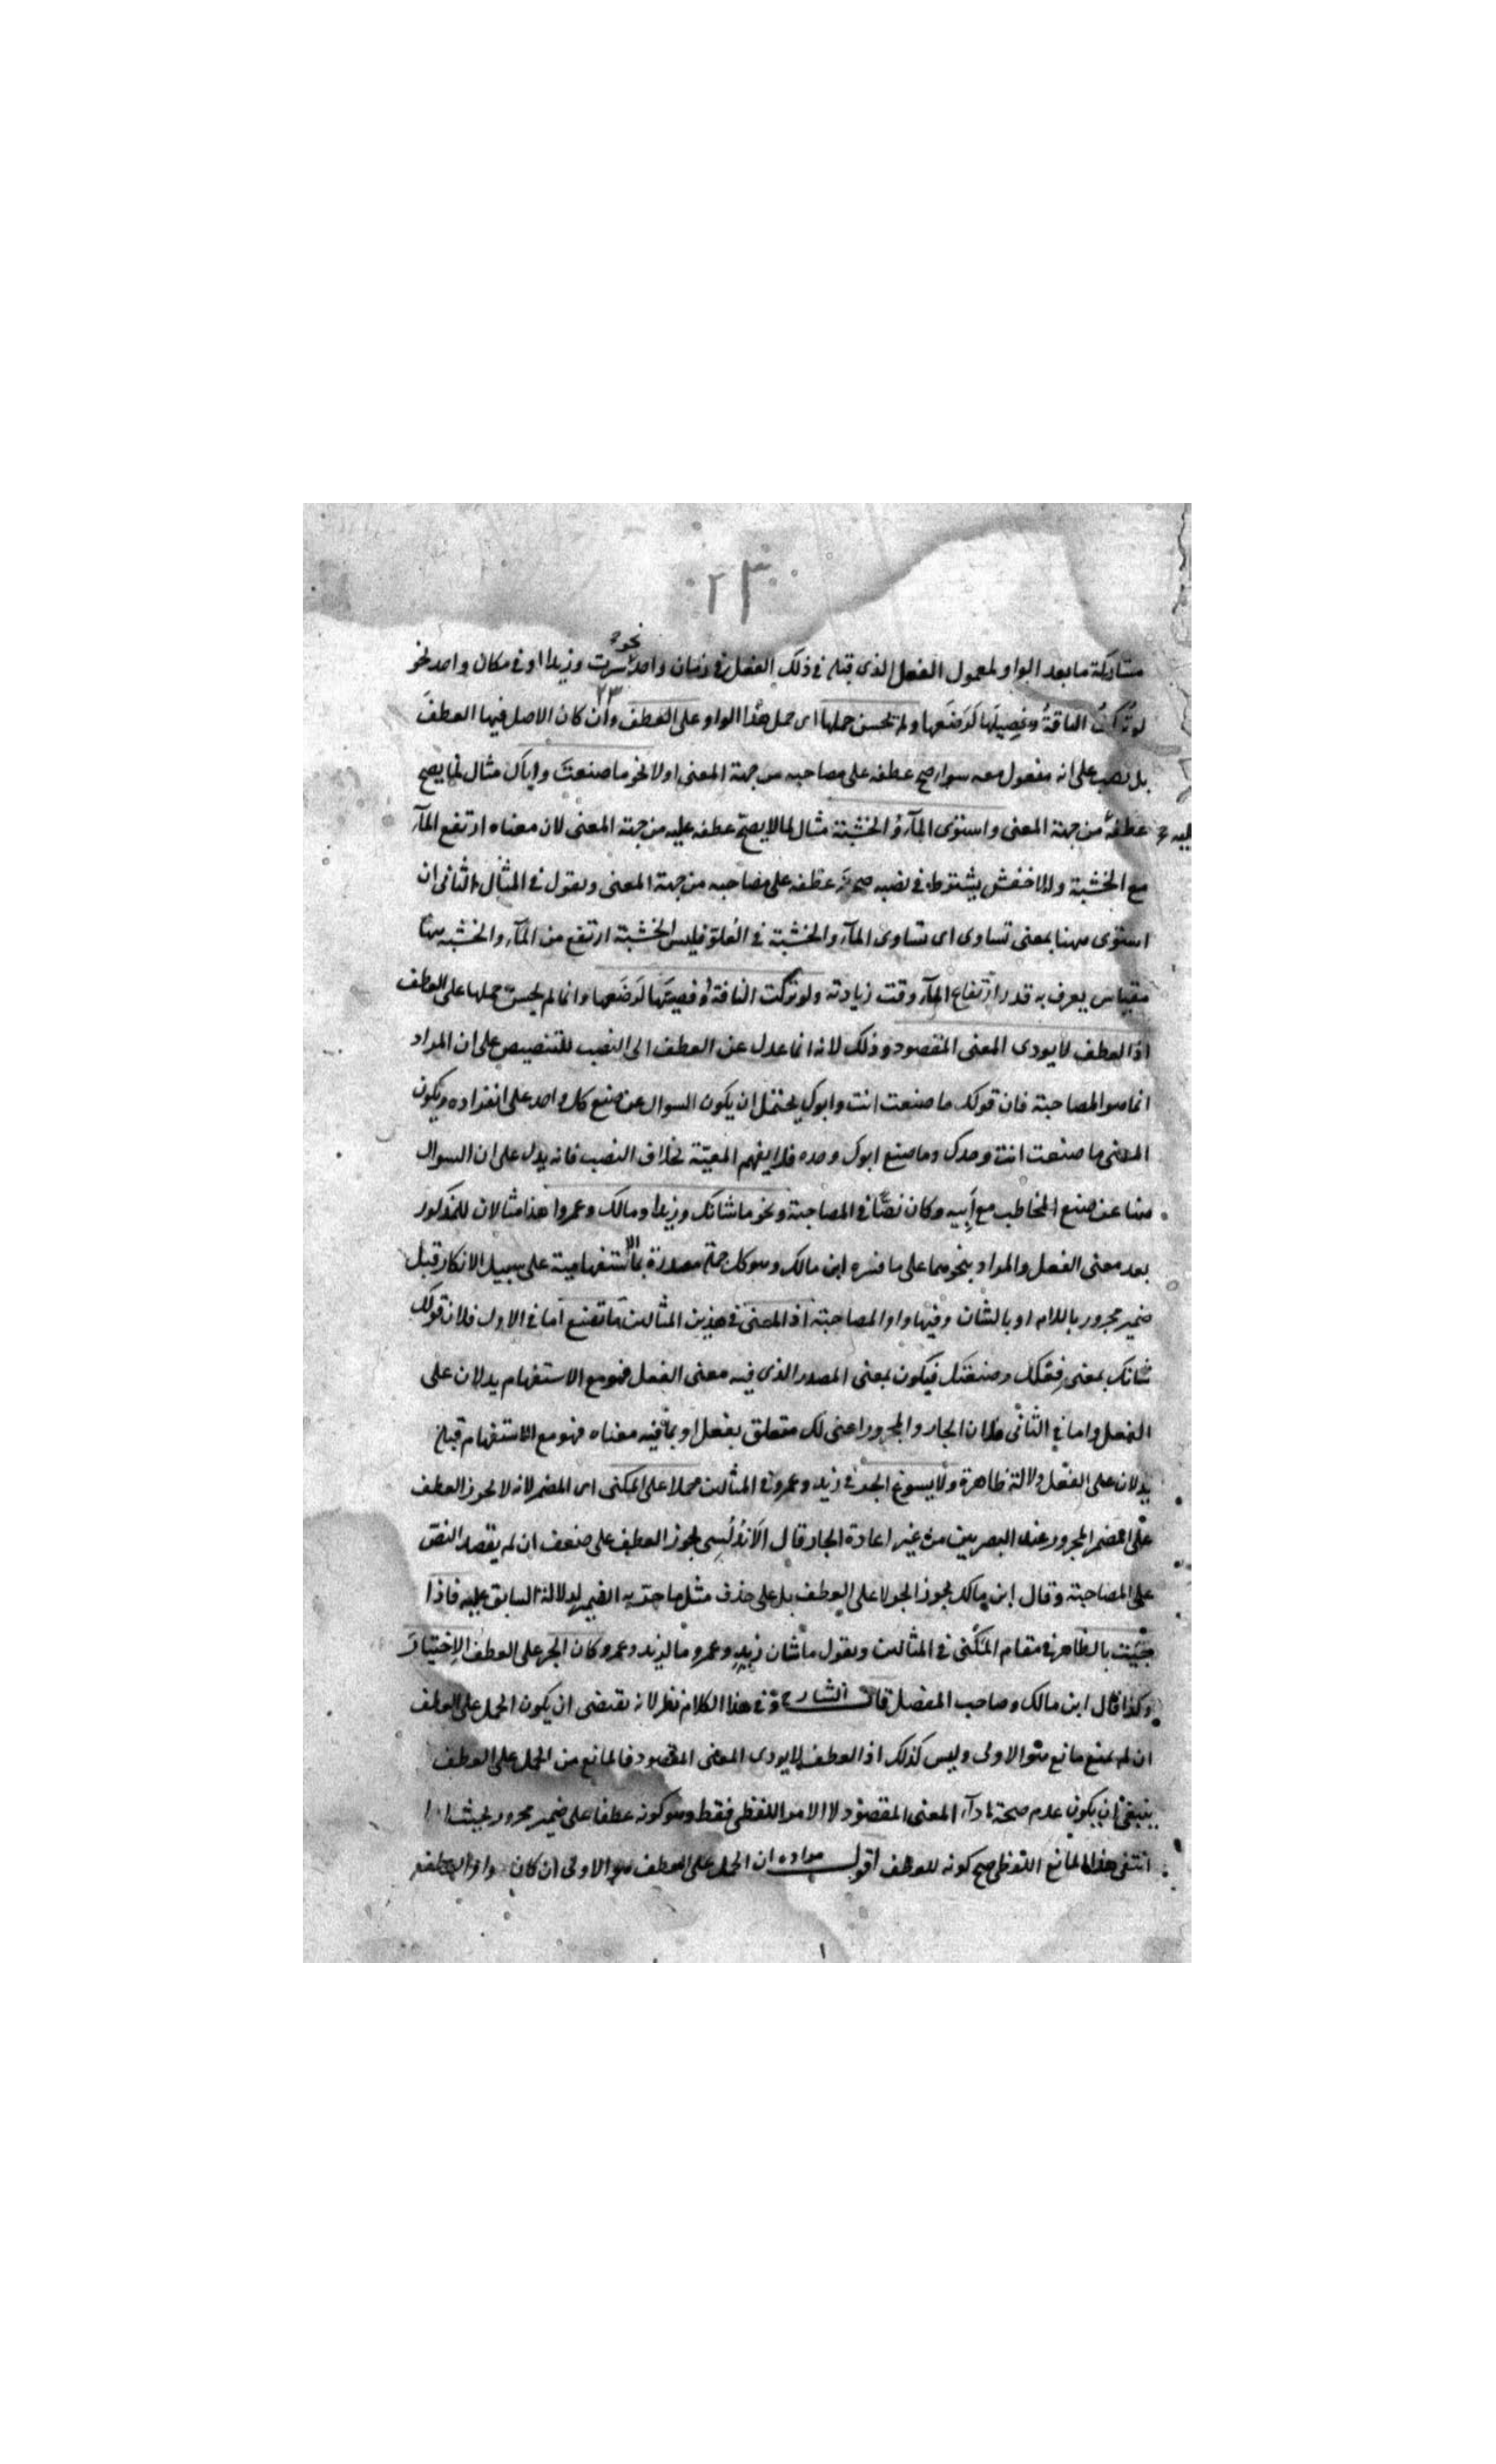 ٢٣
مشاركة ما بعد الواو لمعمول الفعل الذى قبله فى ذلك الفعل فى زمان واحد نحو سرت وزيدا او فى مكان واحد نحو
لو تُركت الناقةُ وفصيلَها لَرَضَعها ولم يحسن حملها اى حمل هذا الواو على العطف وان كان الاصل فيها العطفَ
٢٣
بل نصب على انه مفعول معه سوآء صح عطفه على مصاحبه من جهة المعنى اولا نحو ما صنعتَ واباك مثال لما يصح
عطفه عليه من جهة المعنى واستوى المآءُ والخشبة مثال لما لا يصح عطفه عليه من جهة المعنى لان معناه ارتفع المآء
مع الخشبة والاخفش يشترط فى نصبه صحة عطفه على مصاحبه من جهة المعنى ويقول فى المثال الثانى ان
استوى ههنا بمعنى تساوى اى تساوى المآء والخشبة فى العلو فليس الخشبة ارتفع من المآء والخشبه ههنا
مقياس يعرف به قدر ارتفاع المآء وقت زيادته ولو تركت الناقة وفصيلَها لَرَضَعها وانما لم يحسن حملها على العطف
اذ العطف لا يودى المعنى المقصود وذلك لانه انما عدل عن العطف الى النصب للتنصيص على ان المراد
انما هو المصاحبة فان قولك ما صنعت انت وابوك يحتمل ان يكون السوال عن صنع كل واحد على انفراده ويكون
المعنى ما صنعت انت وحدك وما صنع ابوك وحده فلا يفهم المعيّة بخلاف النصب فانه يدل على ان السوال
هنا عن صنع المخاطب مع اَبيه وكان نصّا فى المصاحبة ونحو ما شانك وزيدا ومالك وعمروا هذا مثالان للمذكور
بعد معنى الفعل والمراد بنحوهما على ما فسره ابن مالك وهو كل جملة مصدرة بما الاستفهامية على سبيل الانكار قبل
ضمير مجرور باللام او بالشان وفيها واو المصاحبة اذ المعنى فى هذين المثالين ما تصنع اما فى الاول فلان قولك
شانك بمعنى فعلك وصنعتك فيكون بمعنى المصدر الذى فيه معنى الفعل فهو مع الاستفهام يدلان على
الفعل واما فى الثانى فلان الجار والمجرور اعنى لك متعلق بفعل او بما فيه معناه فهو مع الاستفهام قبله
يدلان على الفعل دلالة ظاهرة ولا يسوغ الجر فى زيد وعمرو فى المثالين حملا على المكنى اى المضمر لانه لا يجوز العطف
على المضمر المجرور عند البصريين من غير اعادة الجار قال الاَندُلُسِى يجوز العطف على ضعف ان لم يقصد النصّ
على المصاحبة وقال ابن مالك يجوز الجر لا على العطف بل على حذف مثل ما جر به الضمير لدلالة السابق عليه فاذا
جئت بالظاهر فى مقام المكنى فى المثالين وتقول ما شان زيدٍ وعمرو وما لزيد وعمرو كان الجر على العطف الاِختيارَ
وكذا قال ابن مالك وصاحب المفصل قال الشارح وفى هذا الكلام نظر لانه يقتضى ان يكون الحمل على العطف
ان لم يمنع مانع هو الاولى وليس كذلك اذ العطف لا يودى المعنى المقصود فالمانع من الحمل على العطف
ينبغى ان يكون عدم صحة ادآء المعنى المقصود لا الامر اللفظى فقط وهو كونه عطفا على ضمير مجرور بحيث اذا
انتفى هذا المانع اللفظى صح كونه للعطف اقول مراده ان الحمل على العطف هو الاولى ان كان واو العطف